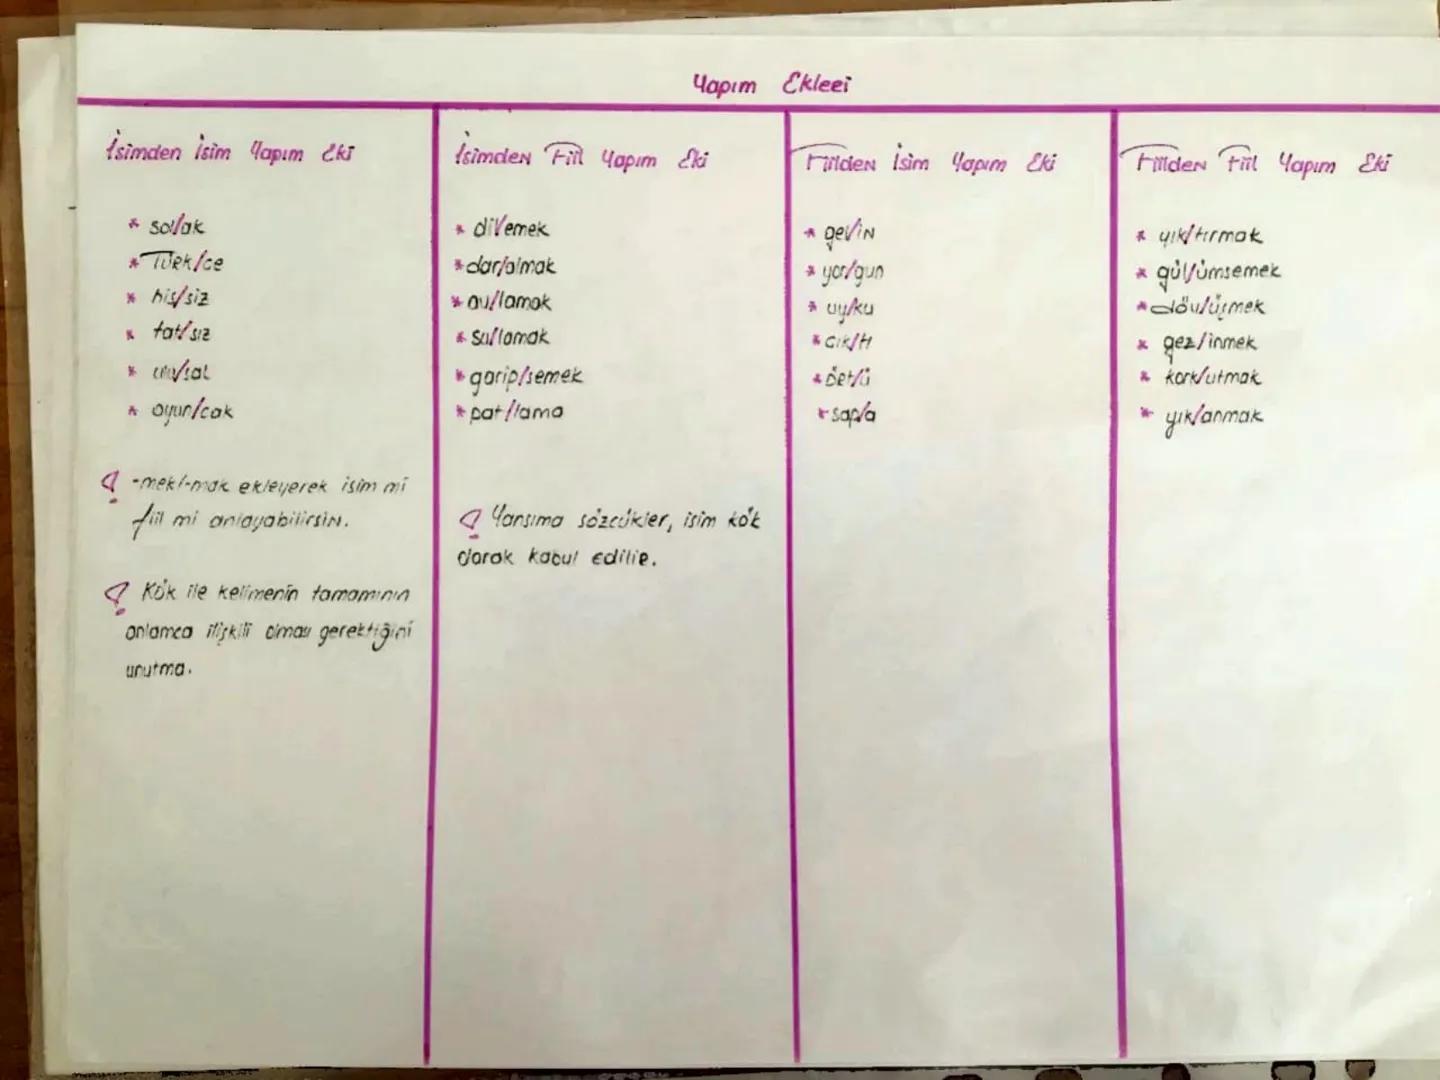 Yapım Ekleri
İsimden İsim Yapım Eki
* sol/ak
* Türk/çe
* his/siz
* tat/sız
* ulu/sal
* oyun/cak
-mek/-mak ekleyerek isim mi
fiil mi anlayabilirsin.
Kök ile kelimenin tamamının
anlamca ilişkili olması gerektiğini
unutma.
İsimden Fiil Yapım Eki
* dil/emek
* dar/almak
* av/lamak
* su/lamak
* garip/semek
* pat/lama
Yansıma sözcükler, isim kök
olarak kabul edilir.
Fiilden İsim Yapım Eki
* gel/in
* yor/gun
* uy/ku
* çık/tı
* ört/ü
* sap/a
Fiilden Fiil Yapım Eki
* yık/tırmak
* gül/ümsemek
* döv/üşmek
* gez/inmek
* kork/utmak
* yık/anmak